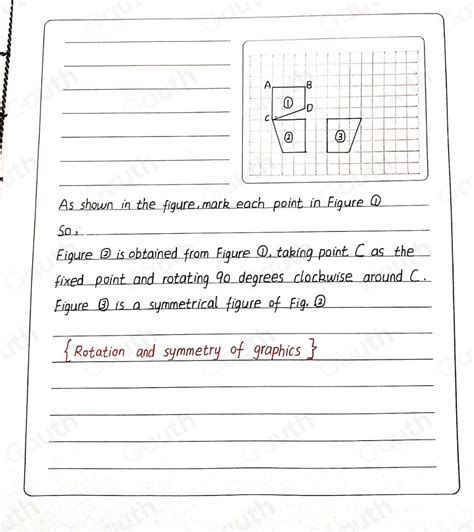 A B
①
D
C
② ③
As shown in the figure, mark each point in Figure ①
So,
Figure ② is obtained from Figure ①, taking point C as the
fixed point and rotating 90 degrees clockwise around C.
Figure ③ is a symmetrical figure of Fig. ②
{Rotation and symmetry of graphics}
Gauth